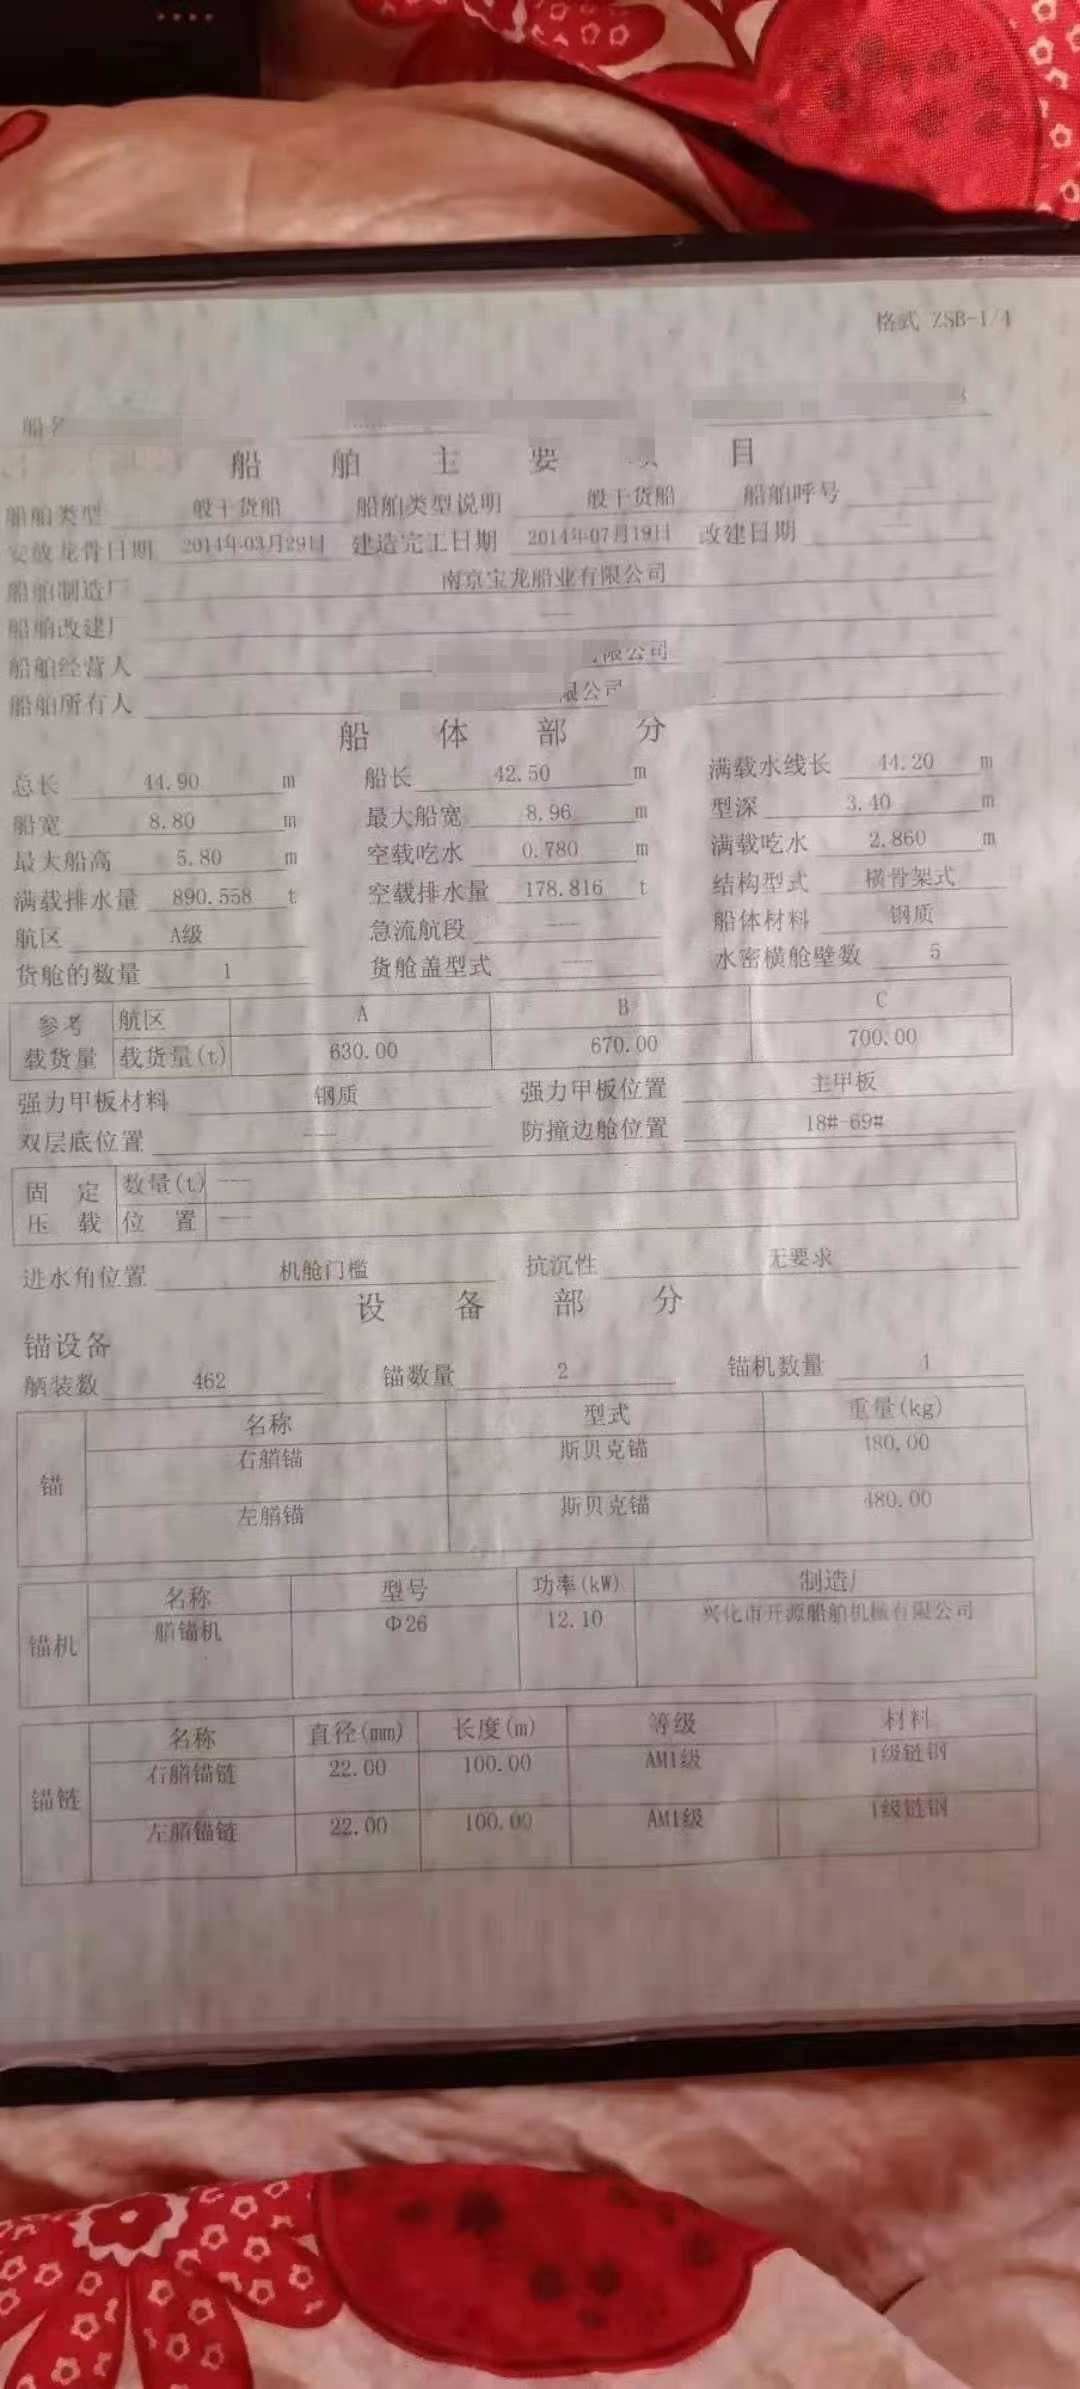 格式 ZSB-1/4
船名
船 舶 主 要 目
船舶类型 般干货船 船舶类型说明 般干货船 船舶呼号
安放龙骨日期 2014年03月29日 建造完工日期 2014年07月19日 改建日期
船舶制造厂 南京宝龙船业有限公司
船舶改建厂 —
船舶经营人 限公司
船舶所有人 限公司
船 体 部 分
总长 44.90 m 船长 42.50 m 满载水线长 44.20 m
船宽 8.80 m 最大船宽 8.96 m 型深 3.40 m
最大船高 5.80 m 空载吃水 0.780 m 满载吃水 2.860 m
满载排水量 890.558 t 空载排水量 178.816 t 结构型式 横骨架式
航区 A级 急流航段 — 船体材料 钢质
货舱的数量 1 货舱盖型式 — 水密横舱壁数 5
参考 航区 A B C
载货量 载货量(t) 630.00 670.00 700.00
强力甲板材料 钢质 强力甲板位置 主甲板
双层底位置 — 防撞边舱位置 18#-69#
固 定 数量(t) —
压 载 位 置 —
进水角位置 机舱门槛 抗沉性 无要求
设 备 部 分
锚设备
舾装数 462 锚数量 2 锚机数量 1
名称 型式 重量(kg)
锚 右艏锚 斯贝克锚 480.00
左艏锚 斯贝克锚 480.00
名称 型号 功率(kW) 制造厂
锚机 艏锚机 Φ26 12.10 兴化市开源船舶机械有限公司
名称 直径(mm) 长度(m) 等级 材料
锚链 右艏锚链 22.00 100.00 AM1级 1级链钢
左艏锚链 22.00 100.00 AM1级 1级链钢